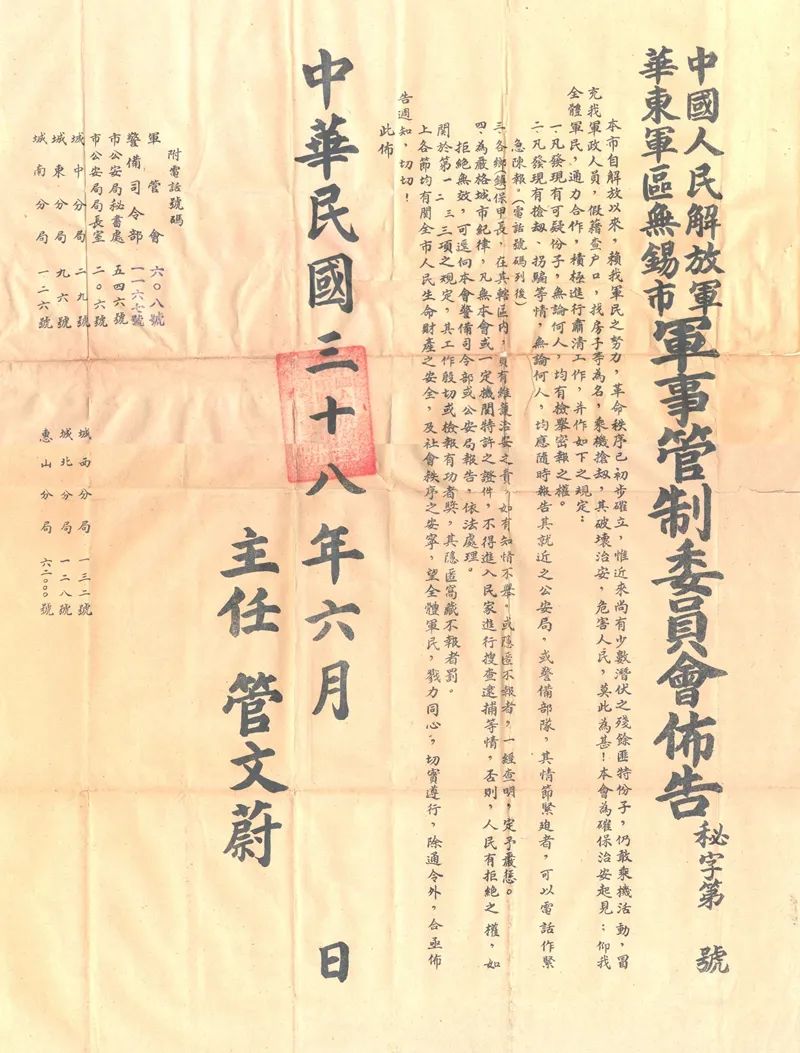 中國人民解放軍
華東軍區無錫市軍事管制委員會佈告
秘字第　號
本市自解放以來，賴我軍民之努力，革命秩序已初步確立，惟近來尚有少數潛伏之殘餘匪特份子，仍敢乘機活動，冒
充我軍政人員，假藉查户口，找房子等為名，乘機搶刼，其破壞治安，危害人民，莫此為甚！本會為確保治安起見：仰我
全體軍民，通力合作，積極進行肅清工作，并作如下之規定：
一、凡發現有可疑份子，無論何人，均有檢舉密報之權。
二、凡發現有搶刼、拐騙等情，無論何人，均應隨時報告其就近之公安局，或警備部隊，其情節緊迫者，可以電話作緊
急陳報。（電話號碼列後）
三、各鄉（鎮）保甲長，在其轄區内，負有維護治安之責，如有知情不舉，或隱匿不報者，一經查明，定予嚴懲。
四、為嚴格城市紀律，凡無本會或一定機関特許之證件，不得進入民家進行搜查逮捕等情，否則，人民有拒絶之權，如
拒絶無效，可逕向本會警備司令部或公安局報告，依法處理。
関於第一二三項之規定，其工作殷切或檢報有功者獎，其隱匿窩藏不報者罰。
上各節均有関全市人民生命財產之安全，及社會秩序之安寧，望全體軍民，戮力同心，切實遵行，除通令外，合亟佈
告週知，切切！
此佈
中華民國三十八年六月　日
主任　管文蔚
附電話號碼
軍管會　六〇八號
警備司令部　一一六七號
市公安局秘書處　五四六號
市公安局局長室　二〇六號
城中分局　二九號
城東分局　九六號
城南分局　一二六號
城西分局　一三二號
城北分局　一二八號
惠山分局　六二〇〇〇號